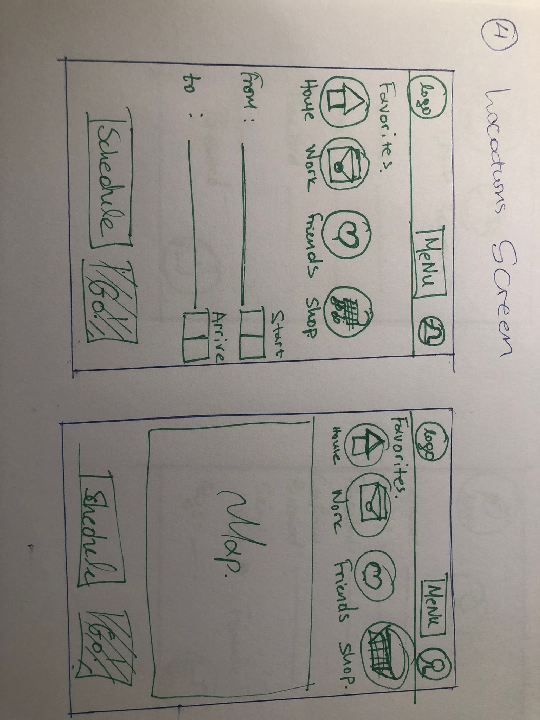 4 Locations Screen
logo MeNu
Favorites.
Home Work Friends Shop
Start
From :
Arrive
to :
Schedule Go!
logo MeNu
Favorites.
Home Work Friends Shop.
Map.
Schedule Go!